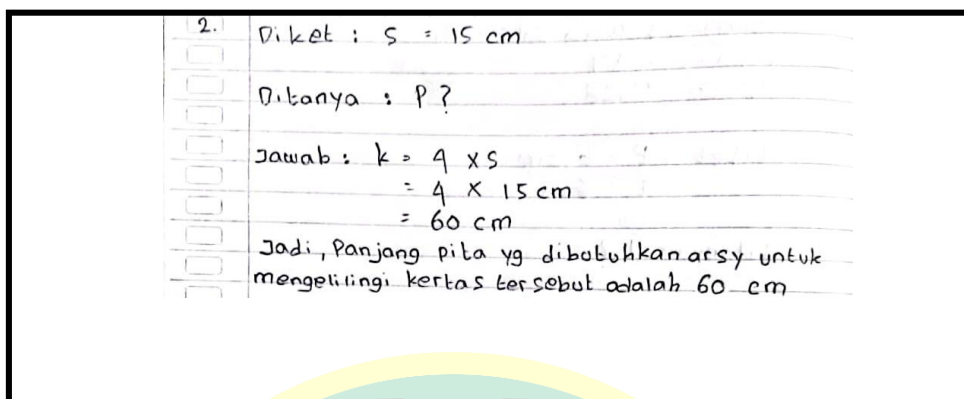 2. Diket : S = 15 cm
Ditanya : P ?
Jawab : k = 4 x S
= 4 x 15 cm
= 60 cm
Jadi, Panjang pita yg dibutuhkan arsy untuk
mengelilingi kertas tersebut adalah 60 cm